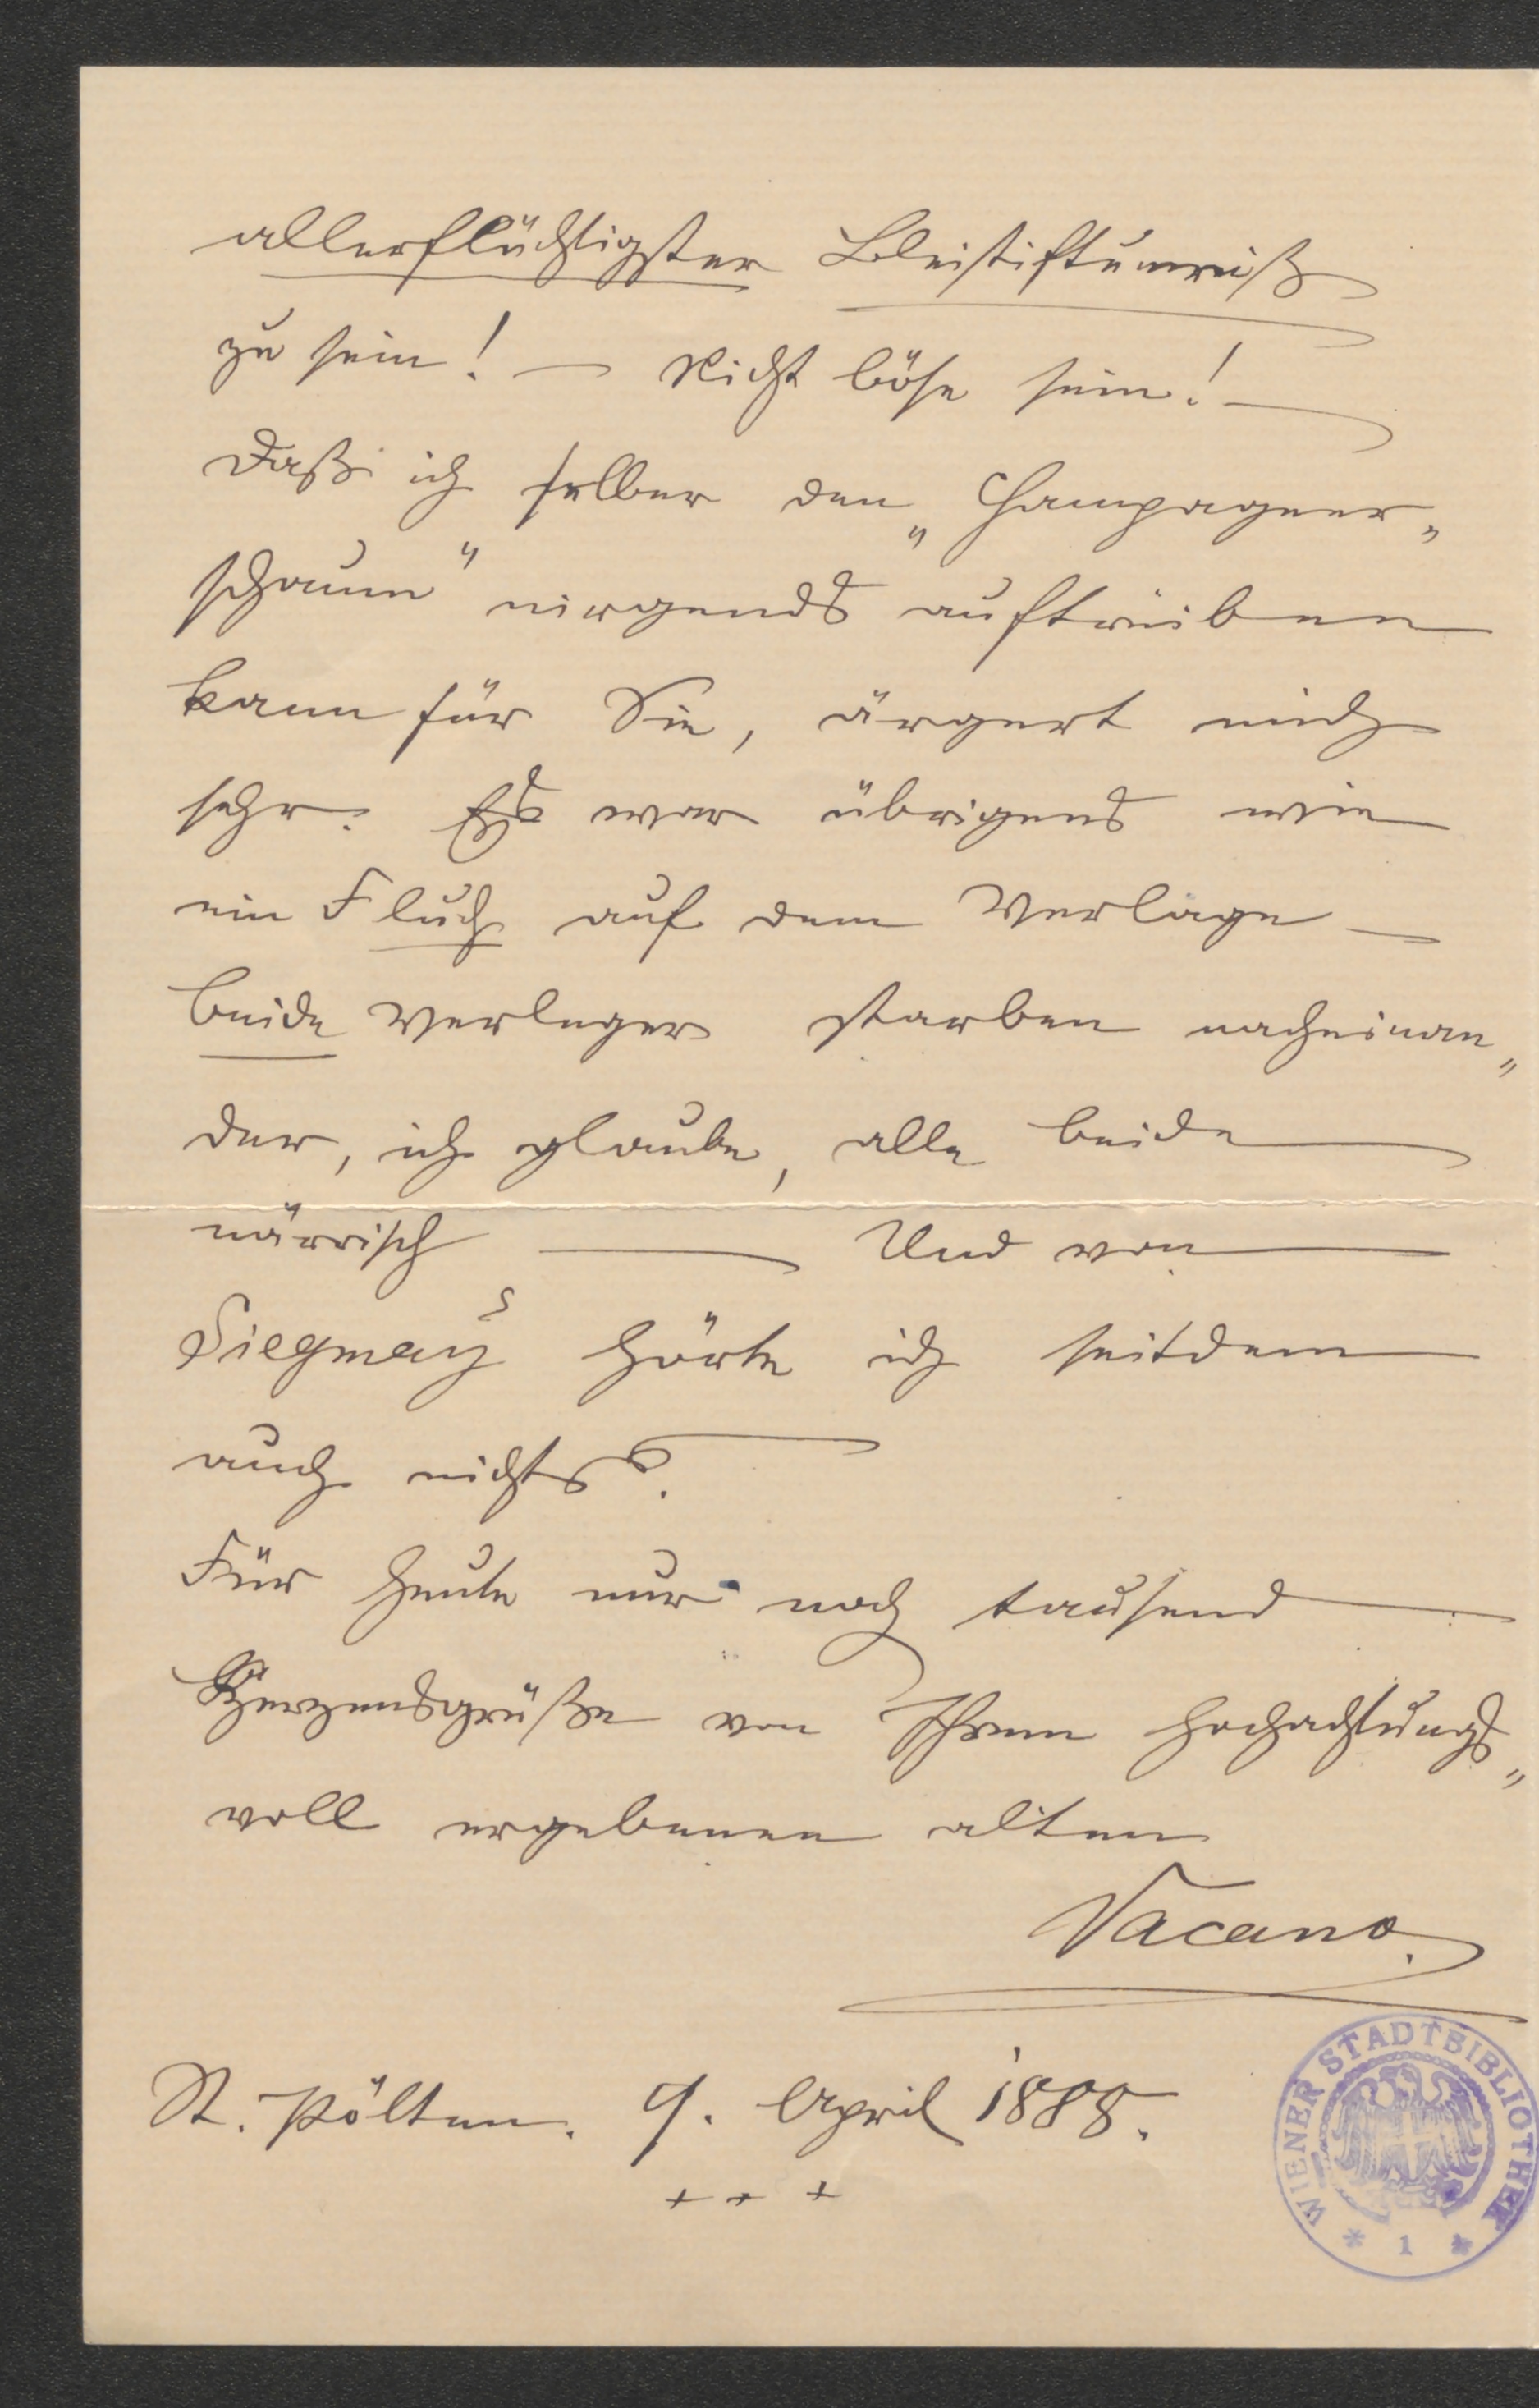 allerflüchtigster Bleistiftumriß
zu sein! — Nicht böse sein! —
Daß ich selber den „Champagner„
schaum“ nirgends auftreiben
kann für Sie, ärgert mich
sehr. Es war übrigens wie
ein Fluch auf dem Verlage —
beide Verleger starben nacheinan„
der, ich glaube, alle beide
närrisch — Und von
Siegmeÿ hörte ich seitdem
auch nichts.
Für heute nur noch tausend
Herzensgrüße von Ihrem hochachtungs„
voll ergebenen alten
Vacano.
St. Pölten. 9. April 1888.
+ + +
WIENER STADTBIBLIOTHEK
* 1 *